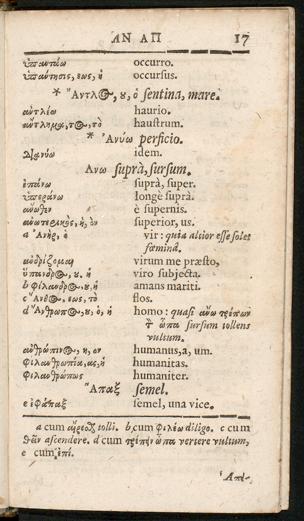 ΑΝ ΑΠ 17
ὑπαντάω occurro.
ὑπάντησις, εως, ἡ occursus.
* Ἄντλος, ου, ὁ sentina, mare.
ἀντλέω haurio.
ἄντλημα, τος, τὸ haustrum.
* Ἀνύω perficio.
διανύω idem.
Ἄνω suprà, sursum.
ἐπάνω suprà, super.
ὑπεράνω longè suprà.
ἄνωθεν è supernis.
ἀνωτερικὸς, ὴ, ὸν superior, us.
a Ἀνὴρ, ὁ vir: quia altior esse solet
fœminâ.
ἀνδρίζομαι virum me præsto,
ὕπανδρος, ου, ἡ viro subjecta.
b φίλανδρος, ου, ἡ amans mariti.
c Ἄνθος, εως, τὸ flos.
d Ἄνθρωπος, ου, ὁ, ἡ homo: quasi ἄνω τρέπων
τ ὦπα sursum tollens
vultum.
ἀνθρώπινος, η, ον humanus, a, um.
φιλανθρωπία, ας, ἡ humanitas.
φιλανθρώπως humaniter.
Ἅπαξ semel.
e ἐφάπαξ semel, una vice.
a cum ἀίρεσθαι tolli. b cum φιλέω diligo. c cum
θέειν ascendere. d cum τρέπειν ὦπα vertere vultum,
e cum ἐπί.
Ἀπά-